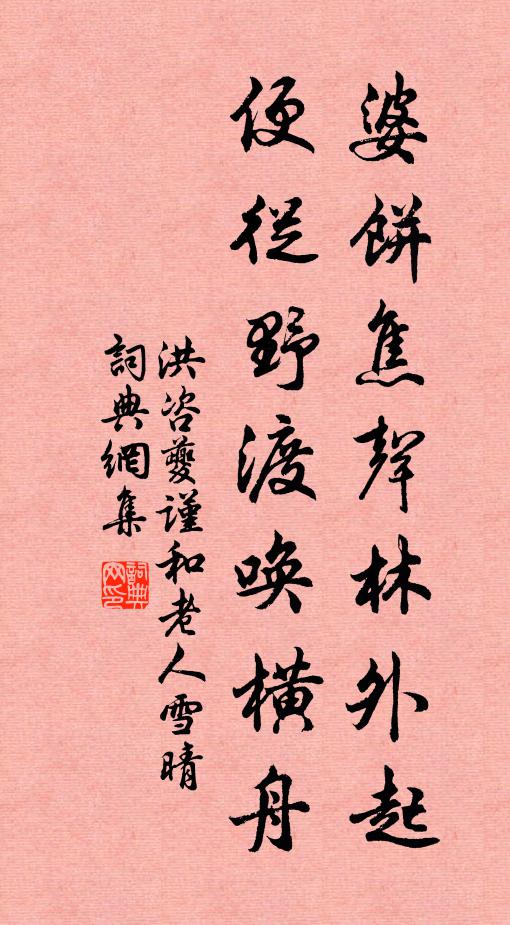 婆餅焦聲林外起
便從野渡喚橫舟
洪咨夔謹和老人雪晴
詞典網集
詞典
网印